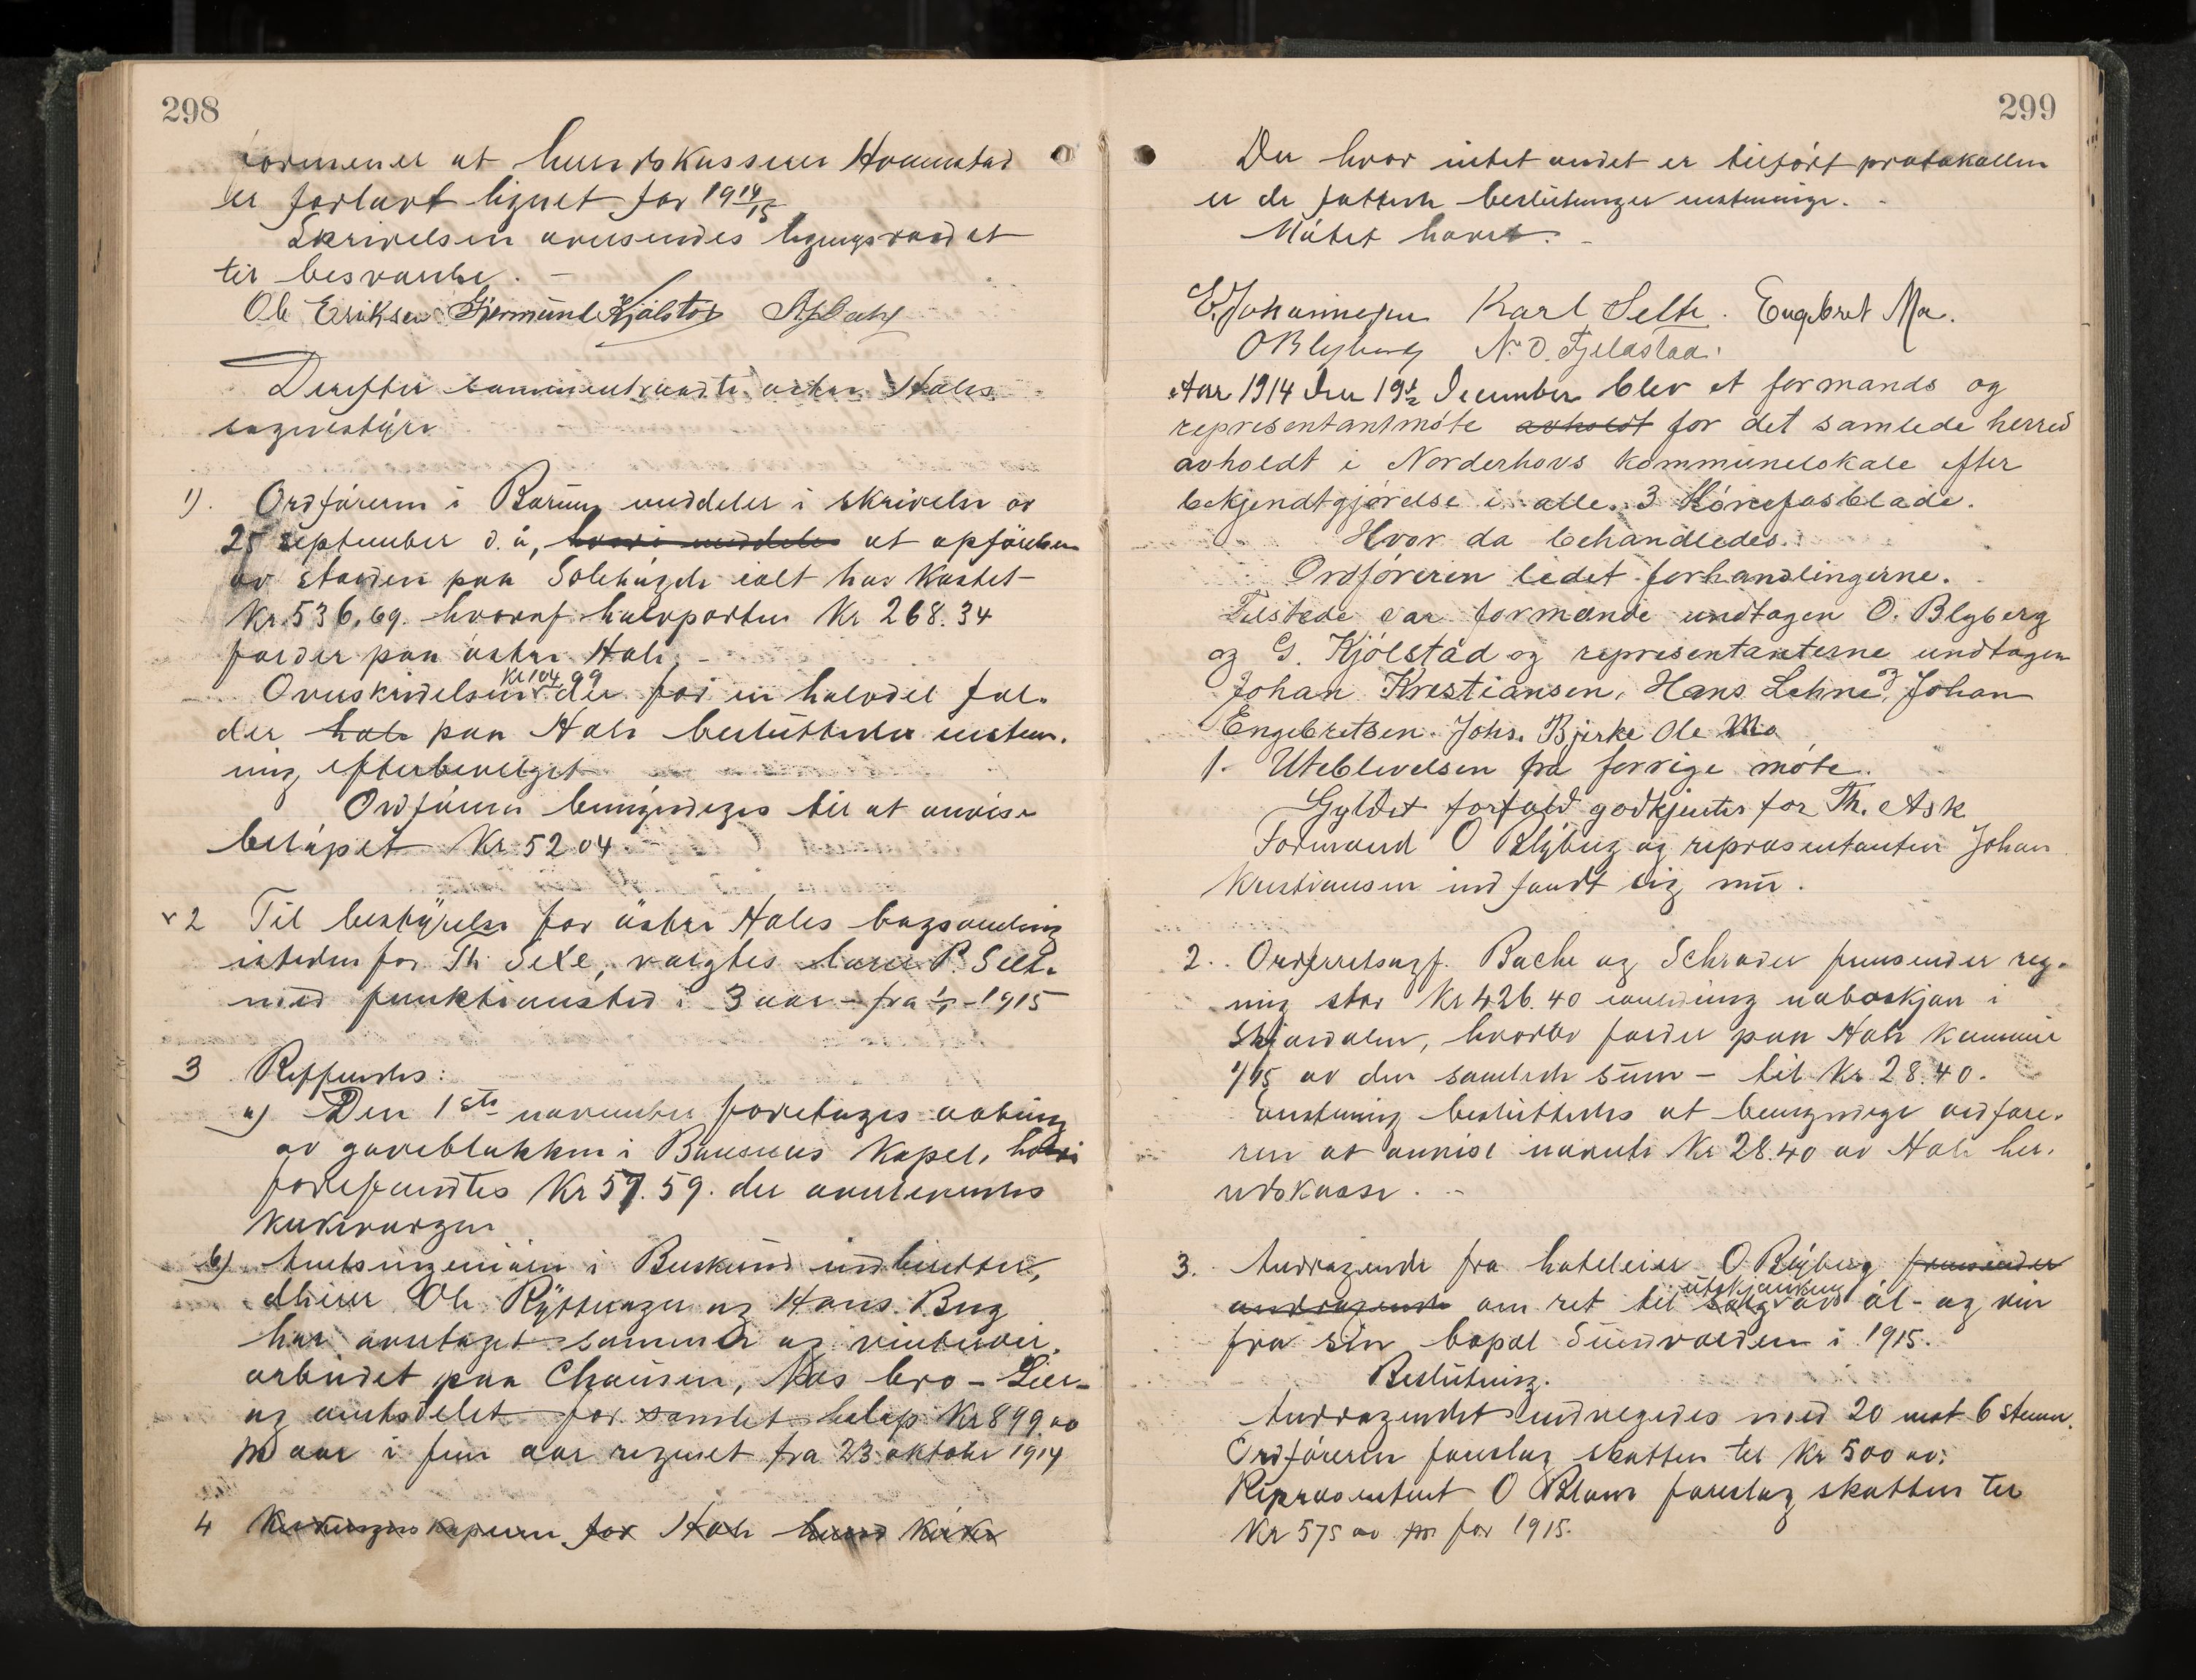 298
formener at herredskasserer Hvamstad
er forlavt lignet for 1914/15
Skrivelsen oversendes ligningsraadet
til besvarelse. –
Ole Eriksen Gjermund Kjølstad
Derefter sammentraadte østre Holes
sognestyre
1). Ordføreren i Bærum meddeler i skrivelse av
25 september d. å, hvori meddeles at opførelsen
av stolden paa Solehøgda ialt har kostet
Kr. 536,69. hvoraf halvparten Kr 268.34
falder paa østre Hole, –
Overskridelsen Kr 104,99 der for en halvdel fal-
der hole paa Hole besluttedes enstem-
mig efterbevilget
Ordføreren bemyndiges til at anvise
beløpet Kr. 52 04 –
2 Til bestyrelse for østre Holes bogsamling
isteden for Th Sexe, valgtes lærer P Selte
med funktionstid i 3 aar – fra 1/1 – 1915
3 Refferedes:
a) Den 1ste november foretages aabning
av gaveblokken i Bønsnes Kapel, hvori
forefandtes Kr 57.59. der avleveredes
kirkevergen
b) Amtsingeniøren i Buskerud indberetter,
at Ole Rytterager og Hans Berg
har overtaget sommer og vinterveie-
arbeidet paa Chauseen, Aas bro – Lier-
og amtsdelet for samlet beløp Kr 899.00
pr aar i fem aar regnet fra 23 oktober 1914
4 Kirkevergens kapren for Hole herred kirke
299
Der hvor intet andet er tilført protokollen
er de fattede beslutninger enstemmige. –
Møtet hævet. –
E. Johannesen Karl Selte. Engebret Mo.
O Blyberg N. O. Fjeldstad.
Aar 1914 den 19de December blev et formands og
representantmøte avholdt for det samlede herred
avholdt i Norderhovs kommunelokale efter
bekjendtgjørelse i alle 3 Hønefosblade.
Hvor da behandledes.
Ordføreren ledet forhandlingerne.
Tilstede var formænde undtagen O. Blyberg
og G. Kjølstad og representanterne undtagen
Johan Kristiansen, Hans Lehne og Johan
Engebretsen. Johs. Bjerke Ole Mo
1. Uteblivelsen fra forrige møte.
Gyldet forfald godkjentes for Th. Ask
Formand O Blyberg og representanten Johan
Kristiansen indfandt sig nu.
2. Overretssagf. Bache og Schrøder fremsender reg-
ning stor Kr 426.40 angaaende naboskjøn i
Skjærdalen, hvorav falder paa Hole kommune
1/15 av den samlede sum – til Kr 28.40.
Enstemmig besluttedes at bemyndige ordføre-
ren at anvise nævnte Kr 28.40 av Hole her-
redskasse. –
3. Andragende fra hoteleier O Blyberg fremsender
andragende om ret til salg utskjænkning av øl- og vin
fra sin bopæl Sundvolden i 1915.
Beslutning.
Andragendet indvilgedes med 20 mot 6 stemm.
Ordføreren foreslog skatten til Kr 500 00:
Representant O Blom foreslog skatten til
Kr 575 00 pr for 1915.